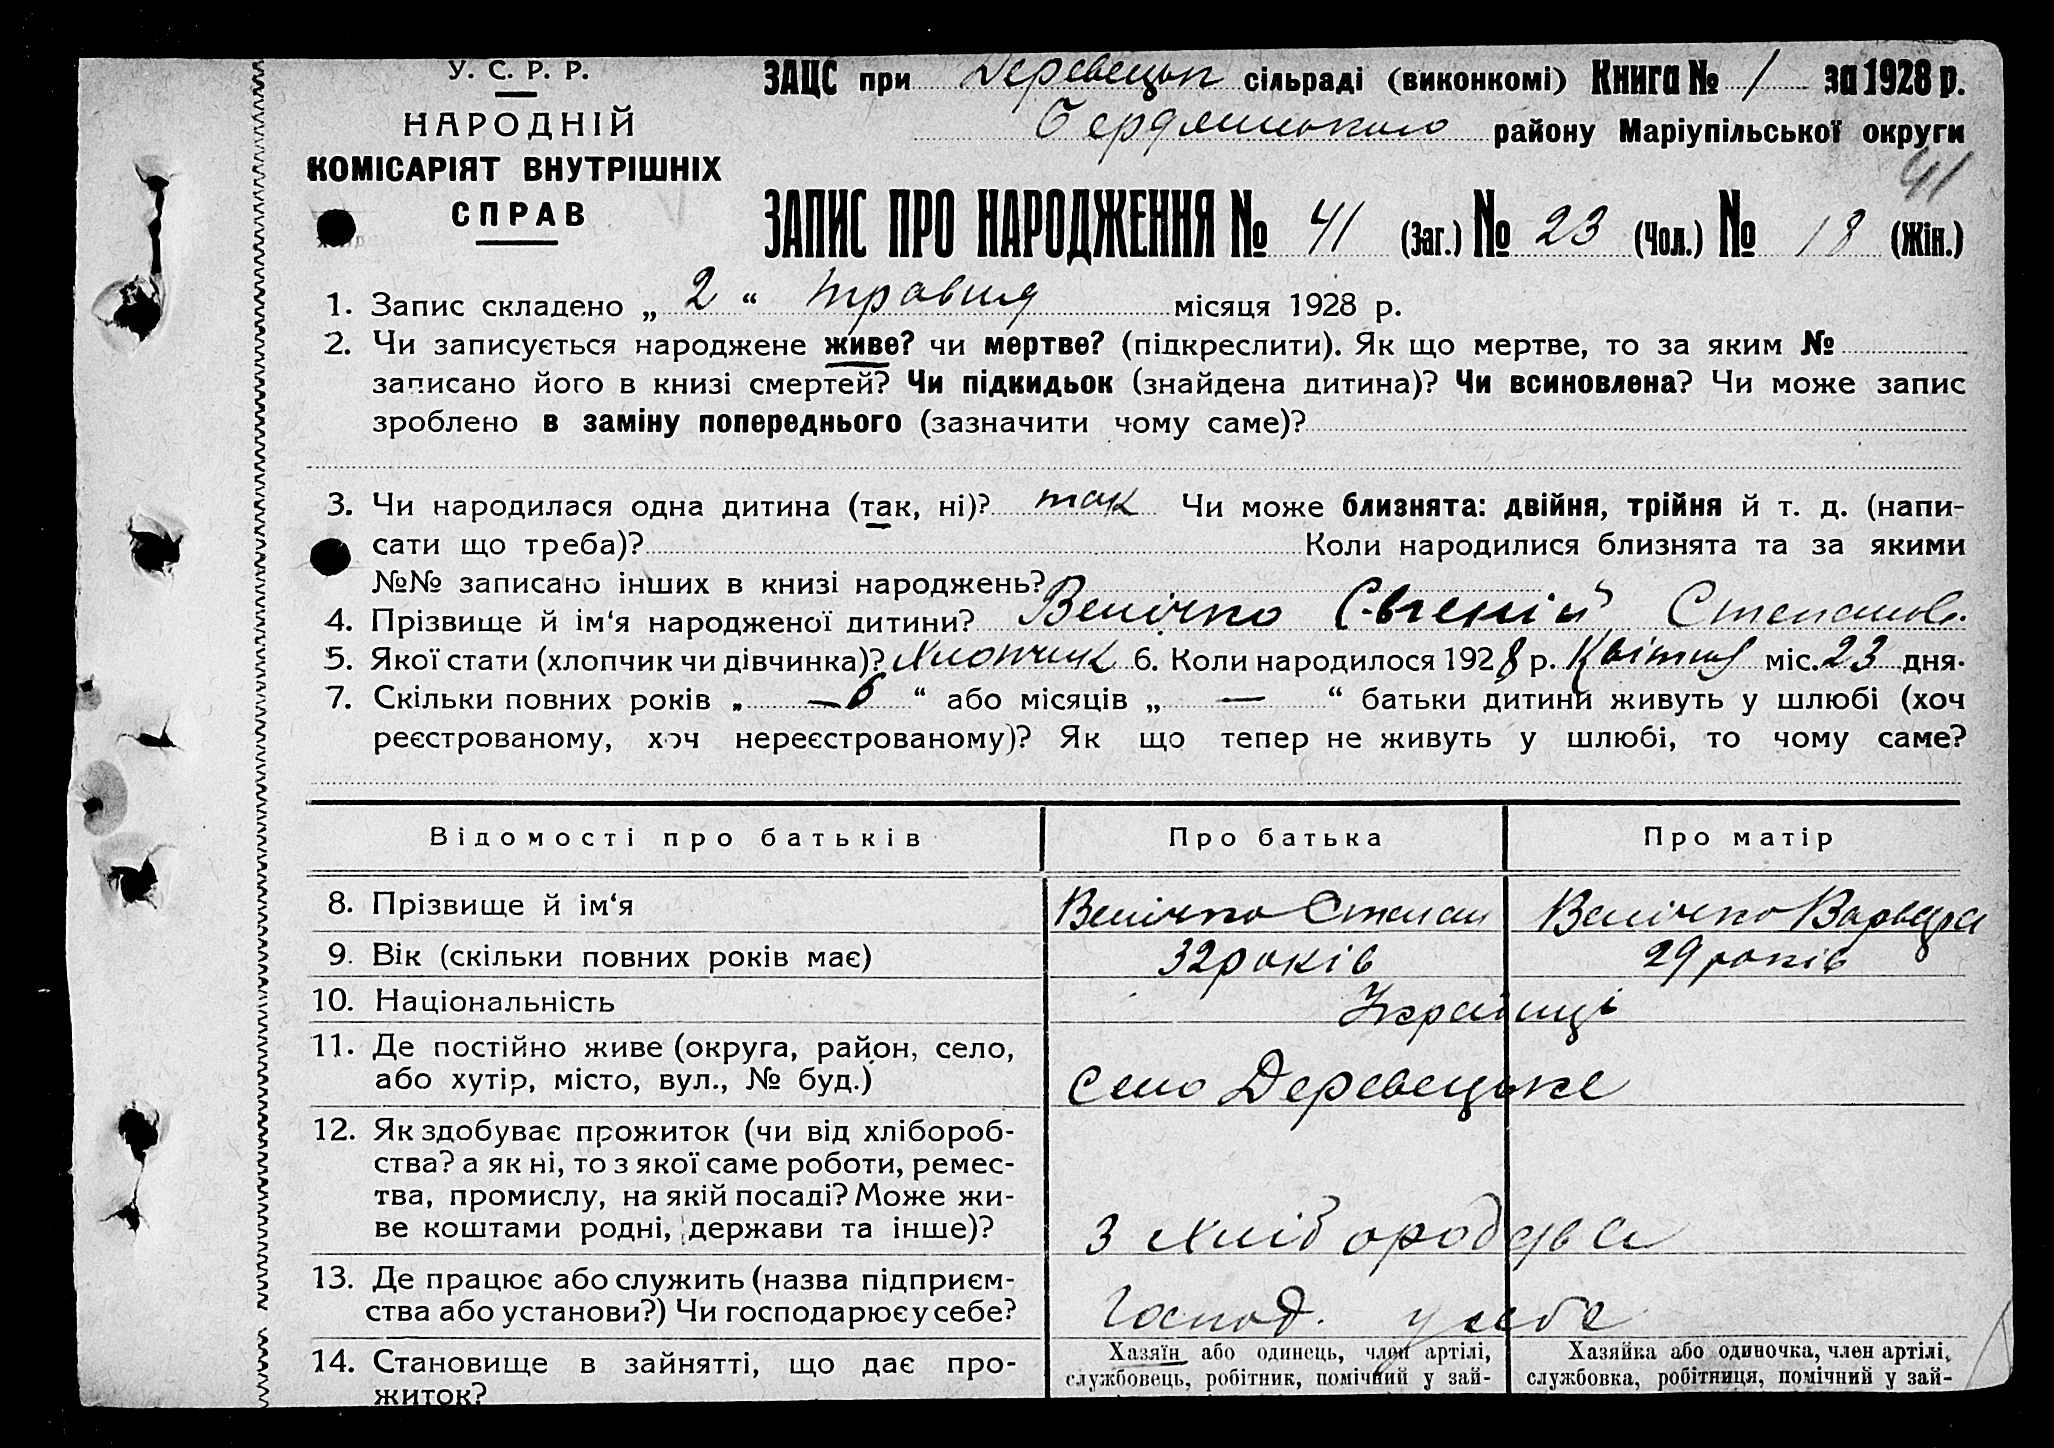 У. С. Р. Р.
НАРОДНІЙ
КОМІСАРІЯТ ВНУТРІШНІХ
СПРАВ
ЗАЦС при Деревецьк сільраді (виконкомі) Книга № 1 за 1928 р.
Бердянського району Маріупільської округи
41
ЗАПИС ПРО НАРОДЖЕННЯ № 41 (Заг.) № 23 (Чол.) № 18 (Жін.)
1. Запис складено „ 2 “ травня місяця 1928 р.
2. Чи записується народжене живе? чи мертве? (підкреслити). Як що мертве, то за яким №
записано його в книзі смертей? Чи підкидьок (знайдена дитина)? Чи всиновлена? Чи може запис
зроблено в заміну попереднього (зазначити чому саме)?
3. Чи народилася одна дитина (так, ні)? так Чи може близнята: двійня, трійня й т. д. (напи-
сати що треба)? Коли народилися близнята та за якими
№№ записано інших в книзі народжень?
4. Прізвище й ім‘я народженої дитини? Велічко Євгеній Степанов.
5. Якої стати (хлопчик чи дівчинка)? Хлопчик 6. Коли народилося 1928 р. Квітня міс. 23 дня.
7. Скільки повних років „ – 6 “ або місяців „ — “ батьки дитини живуть у шлюбі (хоч
реєстрованому, хоч нереєстрованому)? Як що тепер не живуть у шлюбі, то чому саме?
Відомості про батьків Про батька Про матір
8. Прізвище й ім‘я Велічко Степан Велічко Варвара
9. Вік (скільки повних років має) 32 років 29 років
10. Національність Українці
11. Де постійно живе (округа, район, село,
або хутір, місто, вул., № буд.) село Деревецьке
12. Як здобуває прожиток (чи від хлібороб-
ства? а як ні, то з якої саме роботи, ремес-
тва, промислу, на якій посаді? Може жи-
ве коштами родні, держави та інше)? З хліборобства
13. Де працює або служить (назва підприєм-
ства або установи?) Чи господарює у себе? Господ. у себе
14. Становище в зайнятті, що дає про-
житок?
Хазяїн або одинець, член артілі,
службовець, робітник, помічний у зай-
Хазяйка або одиночка, член артілі,
службовка, робітниця, помічний у зай-